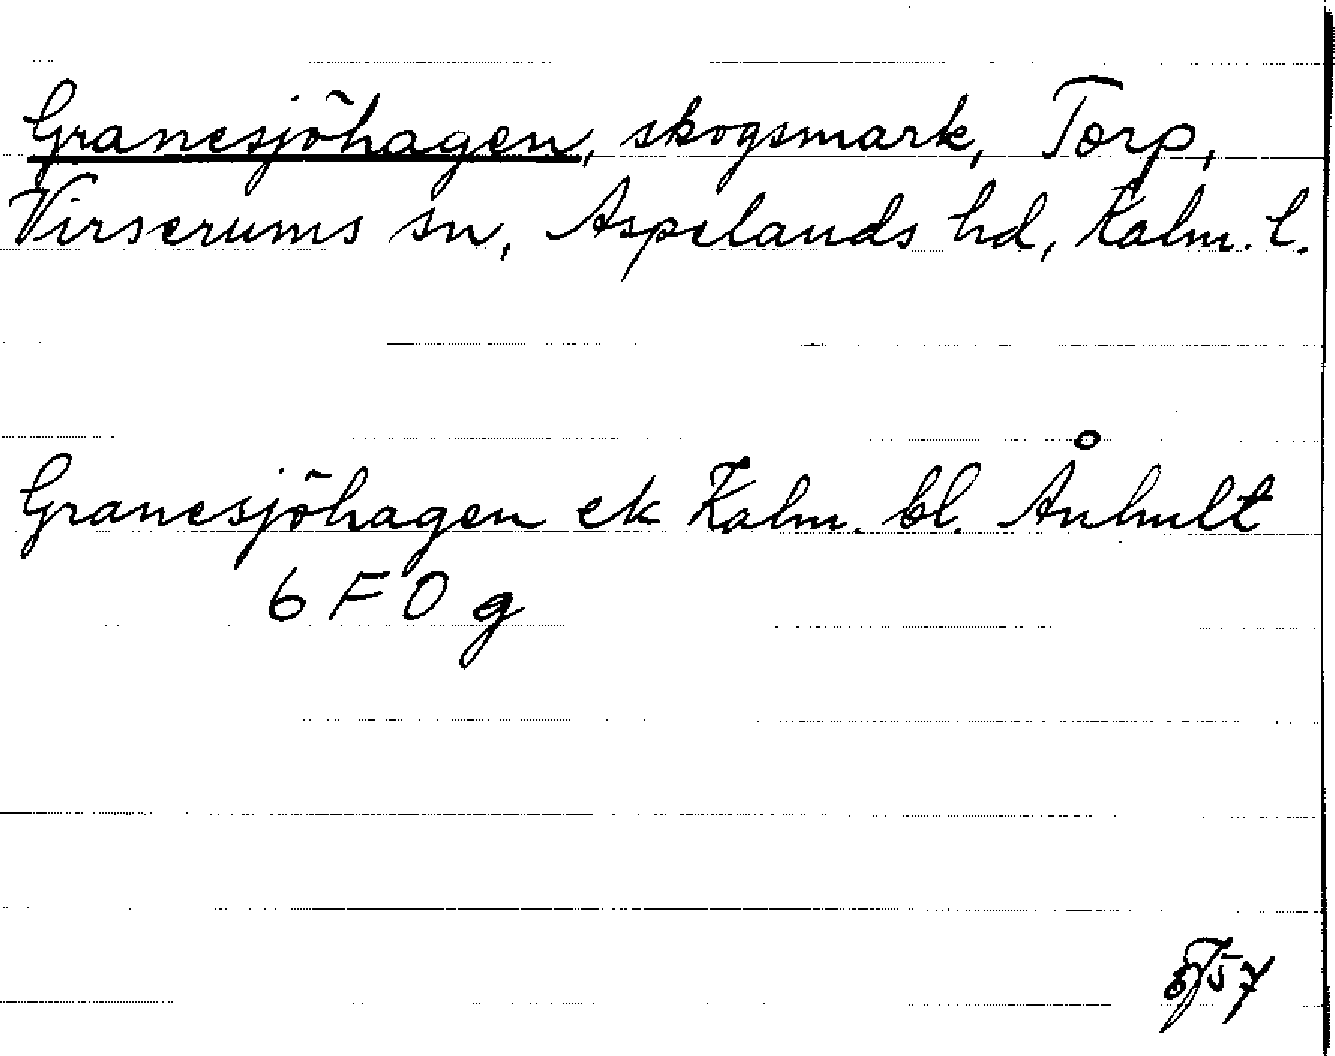 Granesjöhagen, skogsmark, Torp,
Virserums sn, Aspelands hd, Kalm. l.
Granesjöhagen ek Kalm. bl. Ånhult
6 F 0 g